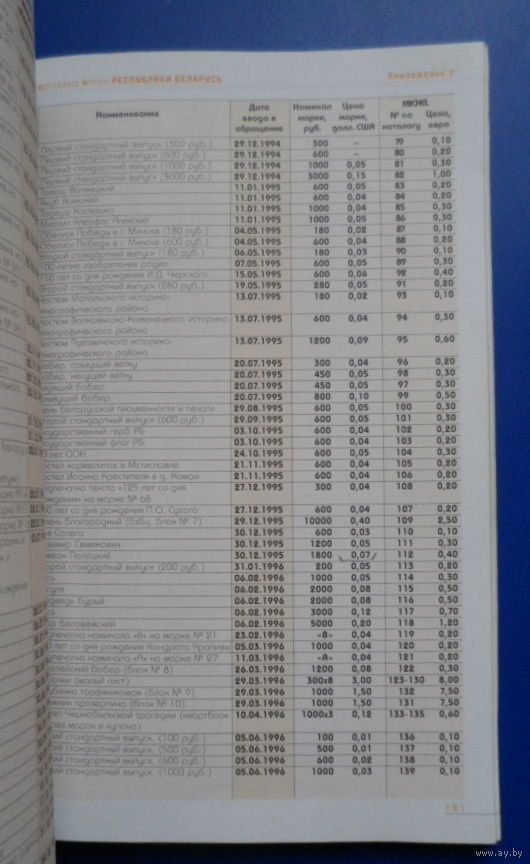 МАРОК РЕСПУБЛИКИ БЕЛАРУСЬ Приложение 7
Наименование Дата ввода в обращение Номинал марки, руб. Цена марки, долл. США МИХЕЛ № по каталогу Цена, евро
Первый стандартный выпуск (300 руб.) 29.12.1994 300 – 79 0,10
Первый стандартный выпуск (600 руб.) 29.12.1994 600 – 80 0,20
Первый стандартный выпуск (1000 руб.) 29.12.1994 1000 0,05 81 0,30
Первый стандартный выпуск (3000 руб.) 29.12.1994 3000 0,15 82 1,00
11.01.1995 600 0,05 83 0,20
Якуб Ясинский 11.01.1995 600 0,04 84 0,20
Тадеуш Костюшко 11.01.1995 1000 0,04 85 0,30
Михаил Клеофас Огинский 11.01.1995 1000 0,05 86 0,30
Обелиск Победы в г. Минске (180 руб.) 04.05.1995 180 0,02 87 0,10
Обелиск Победы в г. Минске (600 руб.) 04.05.1995 600 0,04 88 0,20
Второй стандартный выпуск (180 руб.) 06.05.1995 180 0,03 90 0,10
100-летие изобретения радио 07.05.1995 600 0,05 89 0,30
150 лет со дня рождения И.Д. Черского 15.05.1995 600 0,06 92 0,40
Второй стандартный выпуск (280 руб.) 19.05.1995 280 0,05 91 0,20
костюм Мотольского историко- 13.07.1995 180 0,02 93 0,10
этнографического района
костюм Волковысско-Каменецкого историко- 13.07.1995 600 0,04 94 0,30
нографического района
костюм Пуховичского историко- 13.07.1995 1200 0,09 95 0,60
нографического района
обер, грызущий ветку 20.07.1995 300 0,04 96 0,20
обер, несущий ветку 20.07.1995 450 0,05 98 0,30
дящий бобер 20.07.1995 450 0,05 97 0,30
ывущий бобер 20.07.1995 800 0,10 99 0,50
ень белорусской письменности и печати 29.08.1995 600 0,05 100 0,30
торой стандартный выпуск (600 руб.) 29.09.1995 600 0,05 101 0,30
осударственный герб РБ 03.10.1995 600 0,04 102 0,20
осударственный флаг РБ 03.10.1995 600 0,04 103 0,20
лет ООН 24.10.1995 600 0,05 104 0,30
остел кармелитов в Мстиславле 21.11.1995 600 0,04 105 0,20
остел Иоанна Крестителя в д. Камаи 21.11.1995 600 0,04 106 0,20
адпечатка текста «125 лет со дня 27.12.1995 300 0,04 108 0,20
ждения» на марке № 68
лет со дня рождения П.О. Сухого 27.12.1995 600 0,04 107 0,20
лень благородный (бзбц, блок № 7) 29.12.1995 10000 0,40 109 2,50
Сапега 30.12.1995 600 0,03 110 0,10
азимир Семенович 30.12.1995 1200 0,05 111 0,30
имеон Полоцкий 30.12.1995 1800 0,07 112 0,40
торой стандартный выпуск (200 руб.) 31.01.1996 200 0,05 113 0,20
06.02.1996 1000 0,05 114 0,30
суля 06.02.1996 2000 0,08 115 0,50
едведь бурый 06.02.1996 2000 0,08 116 0,50
06.02.1996 3000 0,12 117 0,70
беловежский 06.02.1996 5000 0,20 118 1,20
дпечатка номинала «В» на марке № 21 23.02.1996 «В» 0,04 119 0,20
лет со дня рождения Кондрата Крапивы 05.03.1996 1000 0,04 120 0,20
дпечатка номинала «А» на марке № 27 11.03.1996 «А» 0,04 121 0,20
опейский бобер (блок № 8) 26.03.1996 1200 0,08 122 0,30
очки (малый лист) 29.03.1996 300x8 3,00 123-130 8,00
торфяниковая (блок № 9) 29.03.1996 1000 1,50 132 7,50
прозерпина (блок № 10) 29.03.1996 1000 1,50 131 7,50
лет Чернобыльской трагедии (квартблок 10.04.1996 1000x3 0,12 133-135 0,60
рех марок и купона)
ий стандартный выпуск. (100 руб.) 05.06.1996 100 0,01 136 0,10
ий стандартный выпуск. (500 руб.) 05.06.1996 500 0,01 137 0,10
ий стандартный выпуск. (600 руб.) 05.06.1996 600 0,02 138 0,10
ий стандартный выпуск. (1000 руб.) 05.06.1996 1000 0,03 139 0,10
www.ay.by